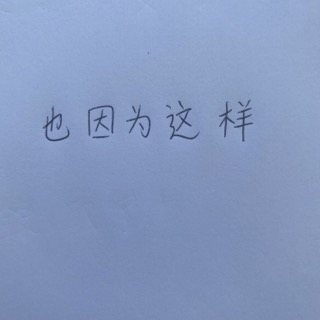 也因为这样